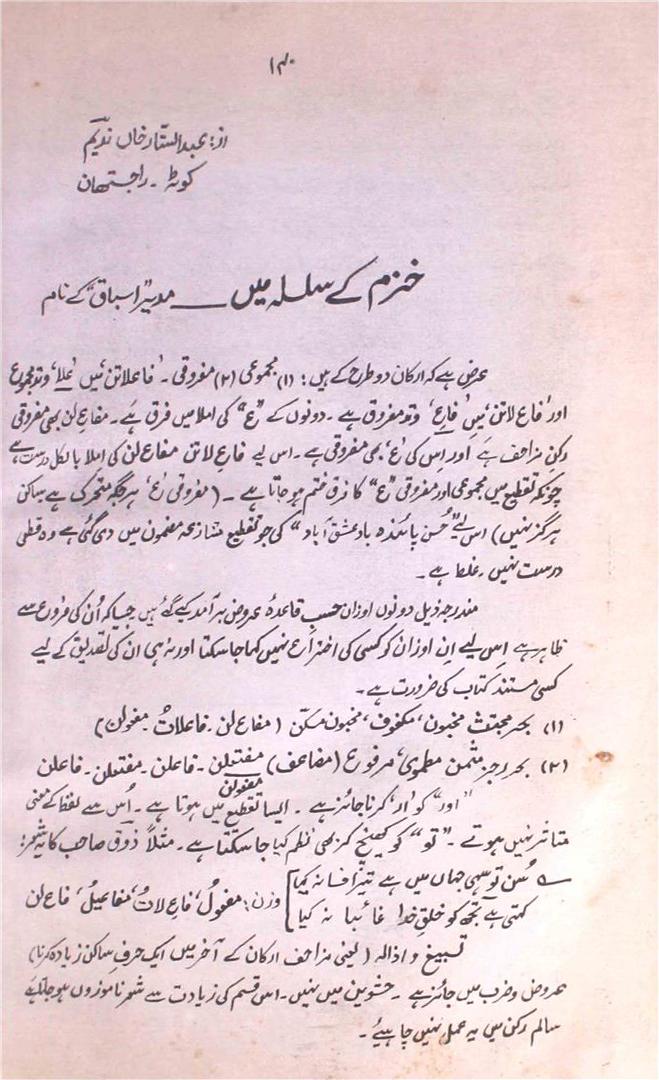 ۱۴۰
از: عبدالستار خاں ندیم
کوٹہ ۔ راجستھان
خزم کے سلسلہ میں ــــ مدیر "اسباق" کے نام
عرض ہے کہ ارکان دو طرح کے ہیں: (۱) مجموعی (۲) مفروقی ۔ 'فاعلاتن' میں 'علا' وتد مجموع
اور 'فاع لاتن' میں 'فاعِ' وتد مفروق ہے ۔ دونوں کے "ع" کی املا میں فرق ہے ۔ مفاعِ لن بھی مفروقی
رکن مزاحف ہے اور اس کی 'ع' بھی مفروقی ہے ۔ اس لیے فاعِ لاتن مفاع لن کی املا بالکل درست ہے
چونکہ تقطیع میں مجموعی اور مفروقی "ع" کا فرق ختم ہو جاتا ہے ۔ (مفروقی 'ع' ہر جگہ متحرک ہے ساکن
ہرگز نہیں) اس لیے "حُسن پائندہ باد عشق آباد" کی جو تقطیع متنازعہ مضمون میں دی گئی ہے وہ قطعی
درست نہیں ۔ غلط ہے ۔
مندرجہ ذیل دونوں اوزان حسبِ قاعدۂ عروض برآمد کیے گئے ہیں جیسا کہ اُن کی فروع سے
ظاہر ہے اس لیے اِن اوزان کو کسی کی اختراع نہیں کہا جا سکتا اور نہ ہی ان کی تصدیق کے لیے
کسی مستند کتاب کی ضرورت ہے ۔
(۱) بحر مجتث مخبون، مکفوف، مخبون مسکن (مفاع لن ۔ فاعلاتُ مفعولن)
(۲) بحر رجز مثمن مطوی، مرفوع (مضاعف) مفتعلن ۔ فاعلن ۔ مفتعلن ۔ فاعلن
مفعولن
"اور" کو 'ار' کرنا جائز ہے ۔ ایسا تقطیع میں ہوتا ہے ۔ اُس سے لفظ کے معنی
متاثر نہیں ہوتے ۔ "تو" کو کھینچ کر بھی نظم کیا جا سکتا ہے ۔ مثلاً ذوق صاحب کا یہ شعر:
سُن تو سہی جہاں میں ہے تیرا فسانہ کیا
کہتی ہے تجھ کو خلقِ خدا غائبانہ کیا ] وزن: مفعولُ، فاعِ لاتُ، مفاعیلُ، فاعِ لن
تسبیغ و اذالہ (یعنی مزاحف ارکان کے آخر میں ایک حرفِ ساکن زیادہ کرنا)
عروض و ضرب میں جائز ہے ۔ حشوین میں نہیں ۔ اس قسم کی زیادت سے شعر ناموزوں ہو جاتا ہے
سالم رکن میں یہ عمل نہیں چاہیے ۔